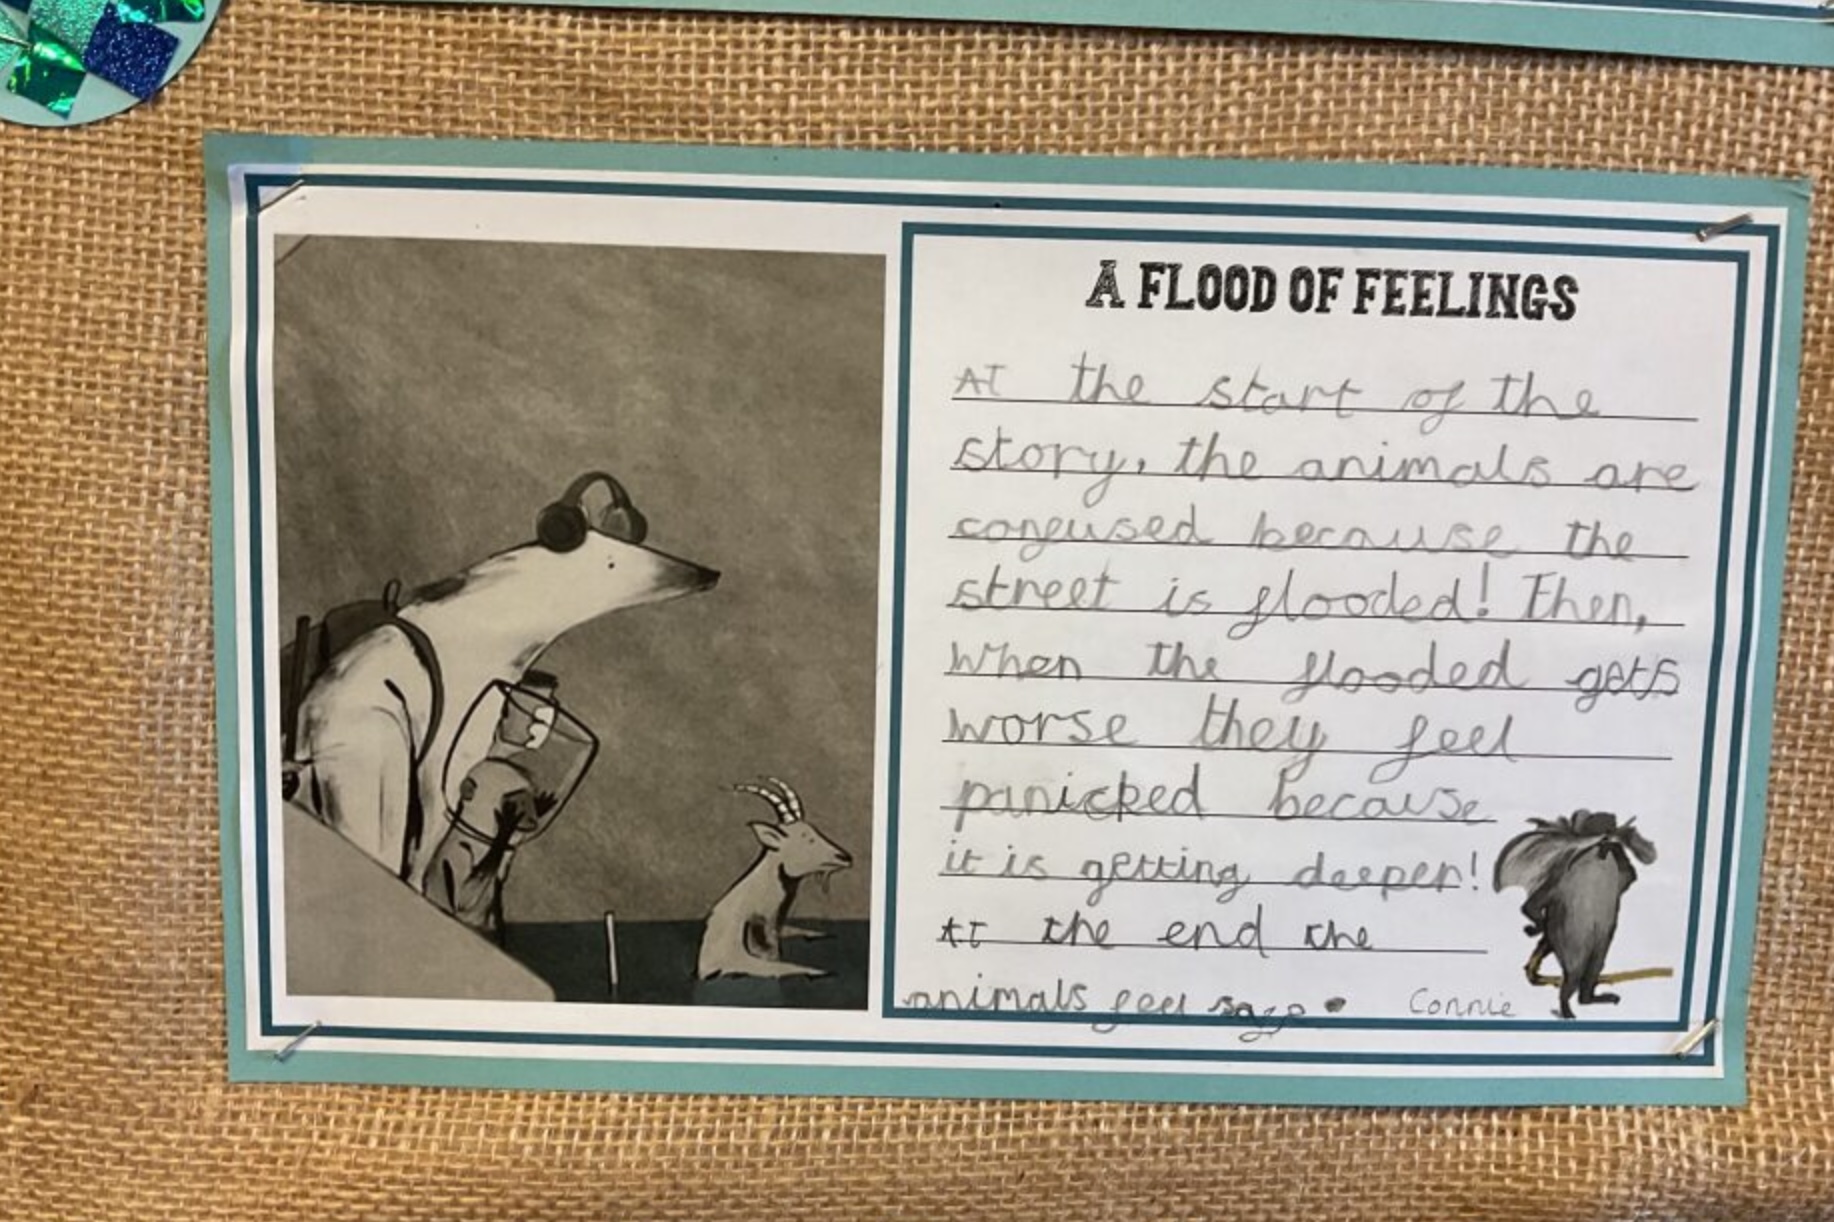 A FLOOD OF FEELINGS
At the start of the
story, the animals are
confused because the
street is flooded! Then,
when the flooded gets
worse they feel
panicked because
it is getting deeper!
At the end the
animals feel safe.
Connie